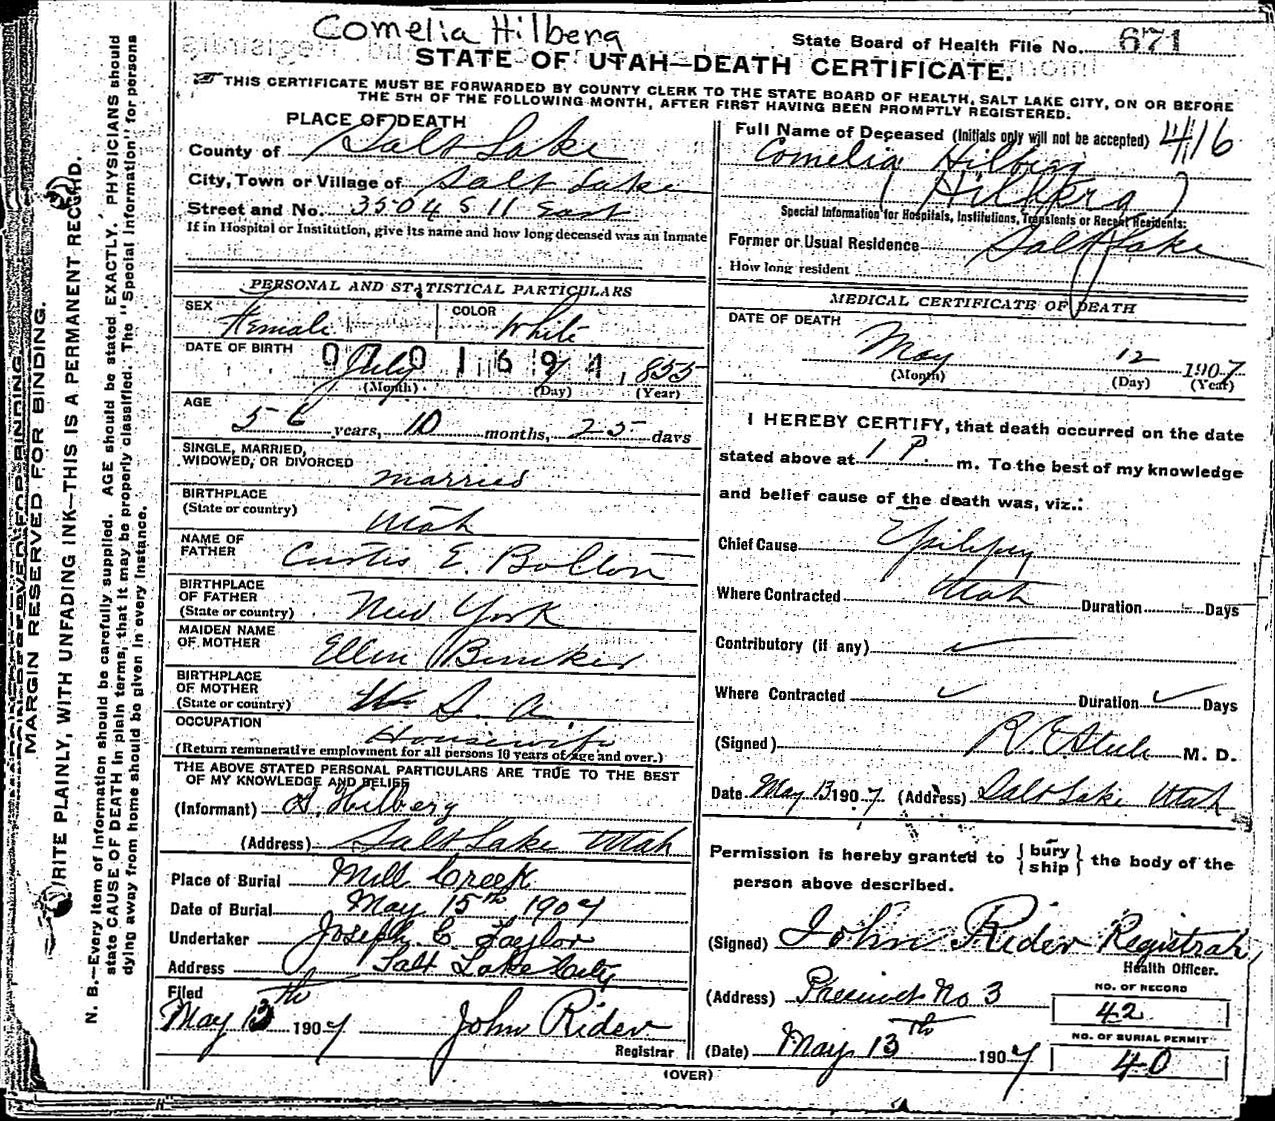 Cornelia Hilberg
State Board of Health File No. 671
STATE OF UTAH—DEATH CERTIFICATE.
THIS CERTIFICATE MUST BE FORWARDED BY COUNTY CLERK TO THE STATE BOARD OF HEALTH, SALT LAKE CITY, ON OR BEFORE
THE 5TH OF THE FOLLOWING MONTH, AFTER FIRST HAVING BEEN PROMPTLY REGISTERED.
PLACE OF DEATH
County of Salt Lake
City, Town or Village of Salt Lake
Street and No. 3504 S 11 East
If in Hospital or Institution, give its name and how long deceased was an inmate
PERSONAL AND STATISTICAL PARTICULARS
SEX Female COLOR White
DATE OF BIRTH 0701691 July 1855
(Month) (Day) (Year)
AGE
56 years, 10 months, 25 days
SINGLE, MARRIED,
WIDOWED, OR DIVORCED married
BIRTHPLACE
(State or country) Utah
NAME OF
FATHER Curtis E. Bolton
BIRTHPLACE
OF FATHER
(State or country) New York
MAIDEN NAME
OF MOTHER Ellen Bunker
BIRTHPLACE
OF MOTHER
(State or country) U. S. A.
OCCUPATION Housewife
(Return remunerative employment for all persons 10 years of age and over.)
THE ABOVE STATED PERSONAL PARTICULARS ARE TRUE TO THE BEST
OF MY KNOWLEDGE AND BELIEF
(Informant) Hilberg
(Address) Salt Lake Utah
Place of Burial Mill Creek
Date of Burial May 15th 1907
Undertaker Joseph E Taylor
Address Salt Lake City
Filed
May 13th 1907 John Rider
Registrar
Full Name of Deceased (Initials only will not be accepted) 416
Cornelia Hilben
(Hilberg)
Special Information for Hospitals, Institutions, Transients or Recent Residents:
Former or Usual Residence Salt Lake
How long resident
MEDICAL CERTIFICATE OF DEATH
DATE OF DEATH
May 12 1907
(Month) (Day) (Year)
I HEREBY CERTIFY, that death occurred on the date
stated above at 1 P. m. To the best of my knowledge
and belief cause of the death was, viz.:
Chief Cause Epilepsy
Where Contracted Utah Duration Days
Contributory (if any)
Where Contracted Duration Days
(Signed) M. D.
Date May 13 1907 (Address) Salt Lake Utah
Permission is hereby granted to { bury ship } the body of the
person above described.
(Signed) John Rider Registrar,
Health Officer.
(Address) Precinct No 3
NO. OF RECORD
42
NO. OF BURIAL PERMIT
40
(Date) May 13th 1907
(OVER)
MARGIN RESERVED FOR BINDING.
WRITE PLAINLY, WITH UNFADING INK—THIS IS A PERMANENT RECORD.
N. B.—Every item of information should be carefully supplied. AGE should be stated EXACTLY. PHYSICIANS should
state CAUSE OF DEATH in plain terms, that it may be properly classified. The "Special Information" for persons
dying away from home should be given in every instance.